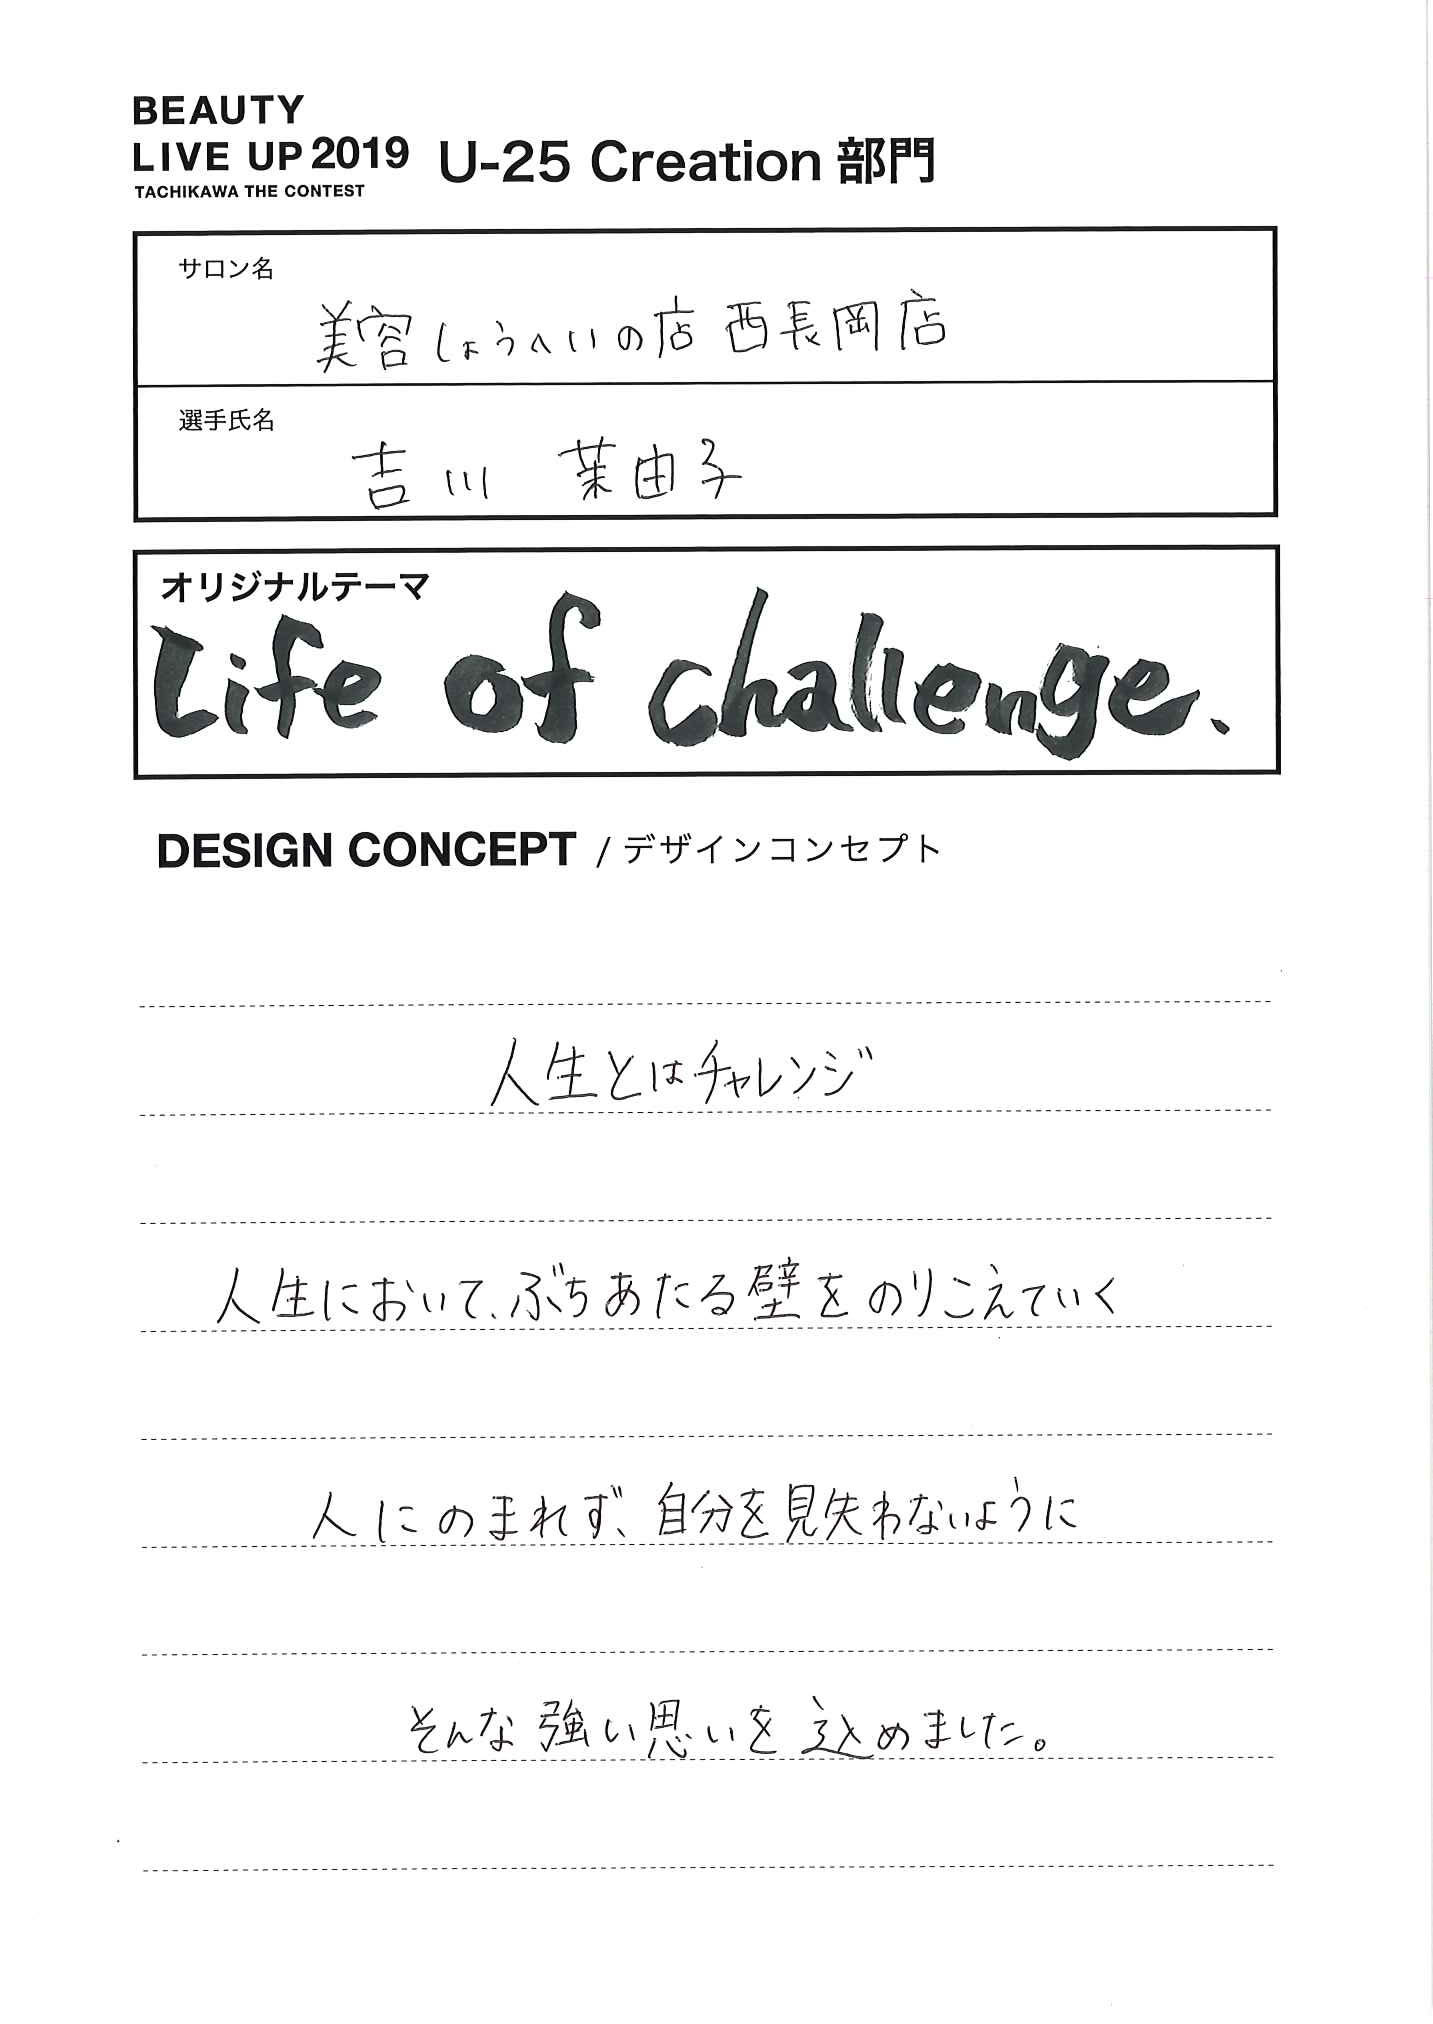 BEAUTY
LIVE UP 2019
TACHIKAWA THE CONTEST
U-25 Creation 部門
サロン名
美容しょうへいの店 西長岡店
選手氏名
吉川 茉由子
オリジナルテーマ
Life of challenge.
DESIGN CONCEPT / デザインコンセプト
人生とはチャレンジ
人生において、ぶちあたる壁をのりこえていく
人にのまれず、自分を見失わないように
そんな強い思いを込めました。